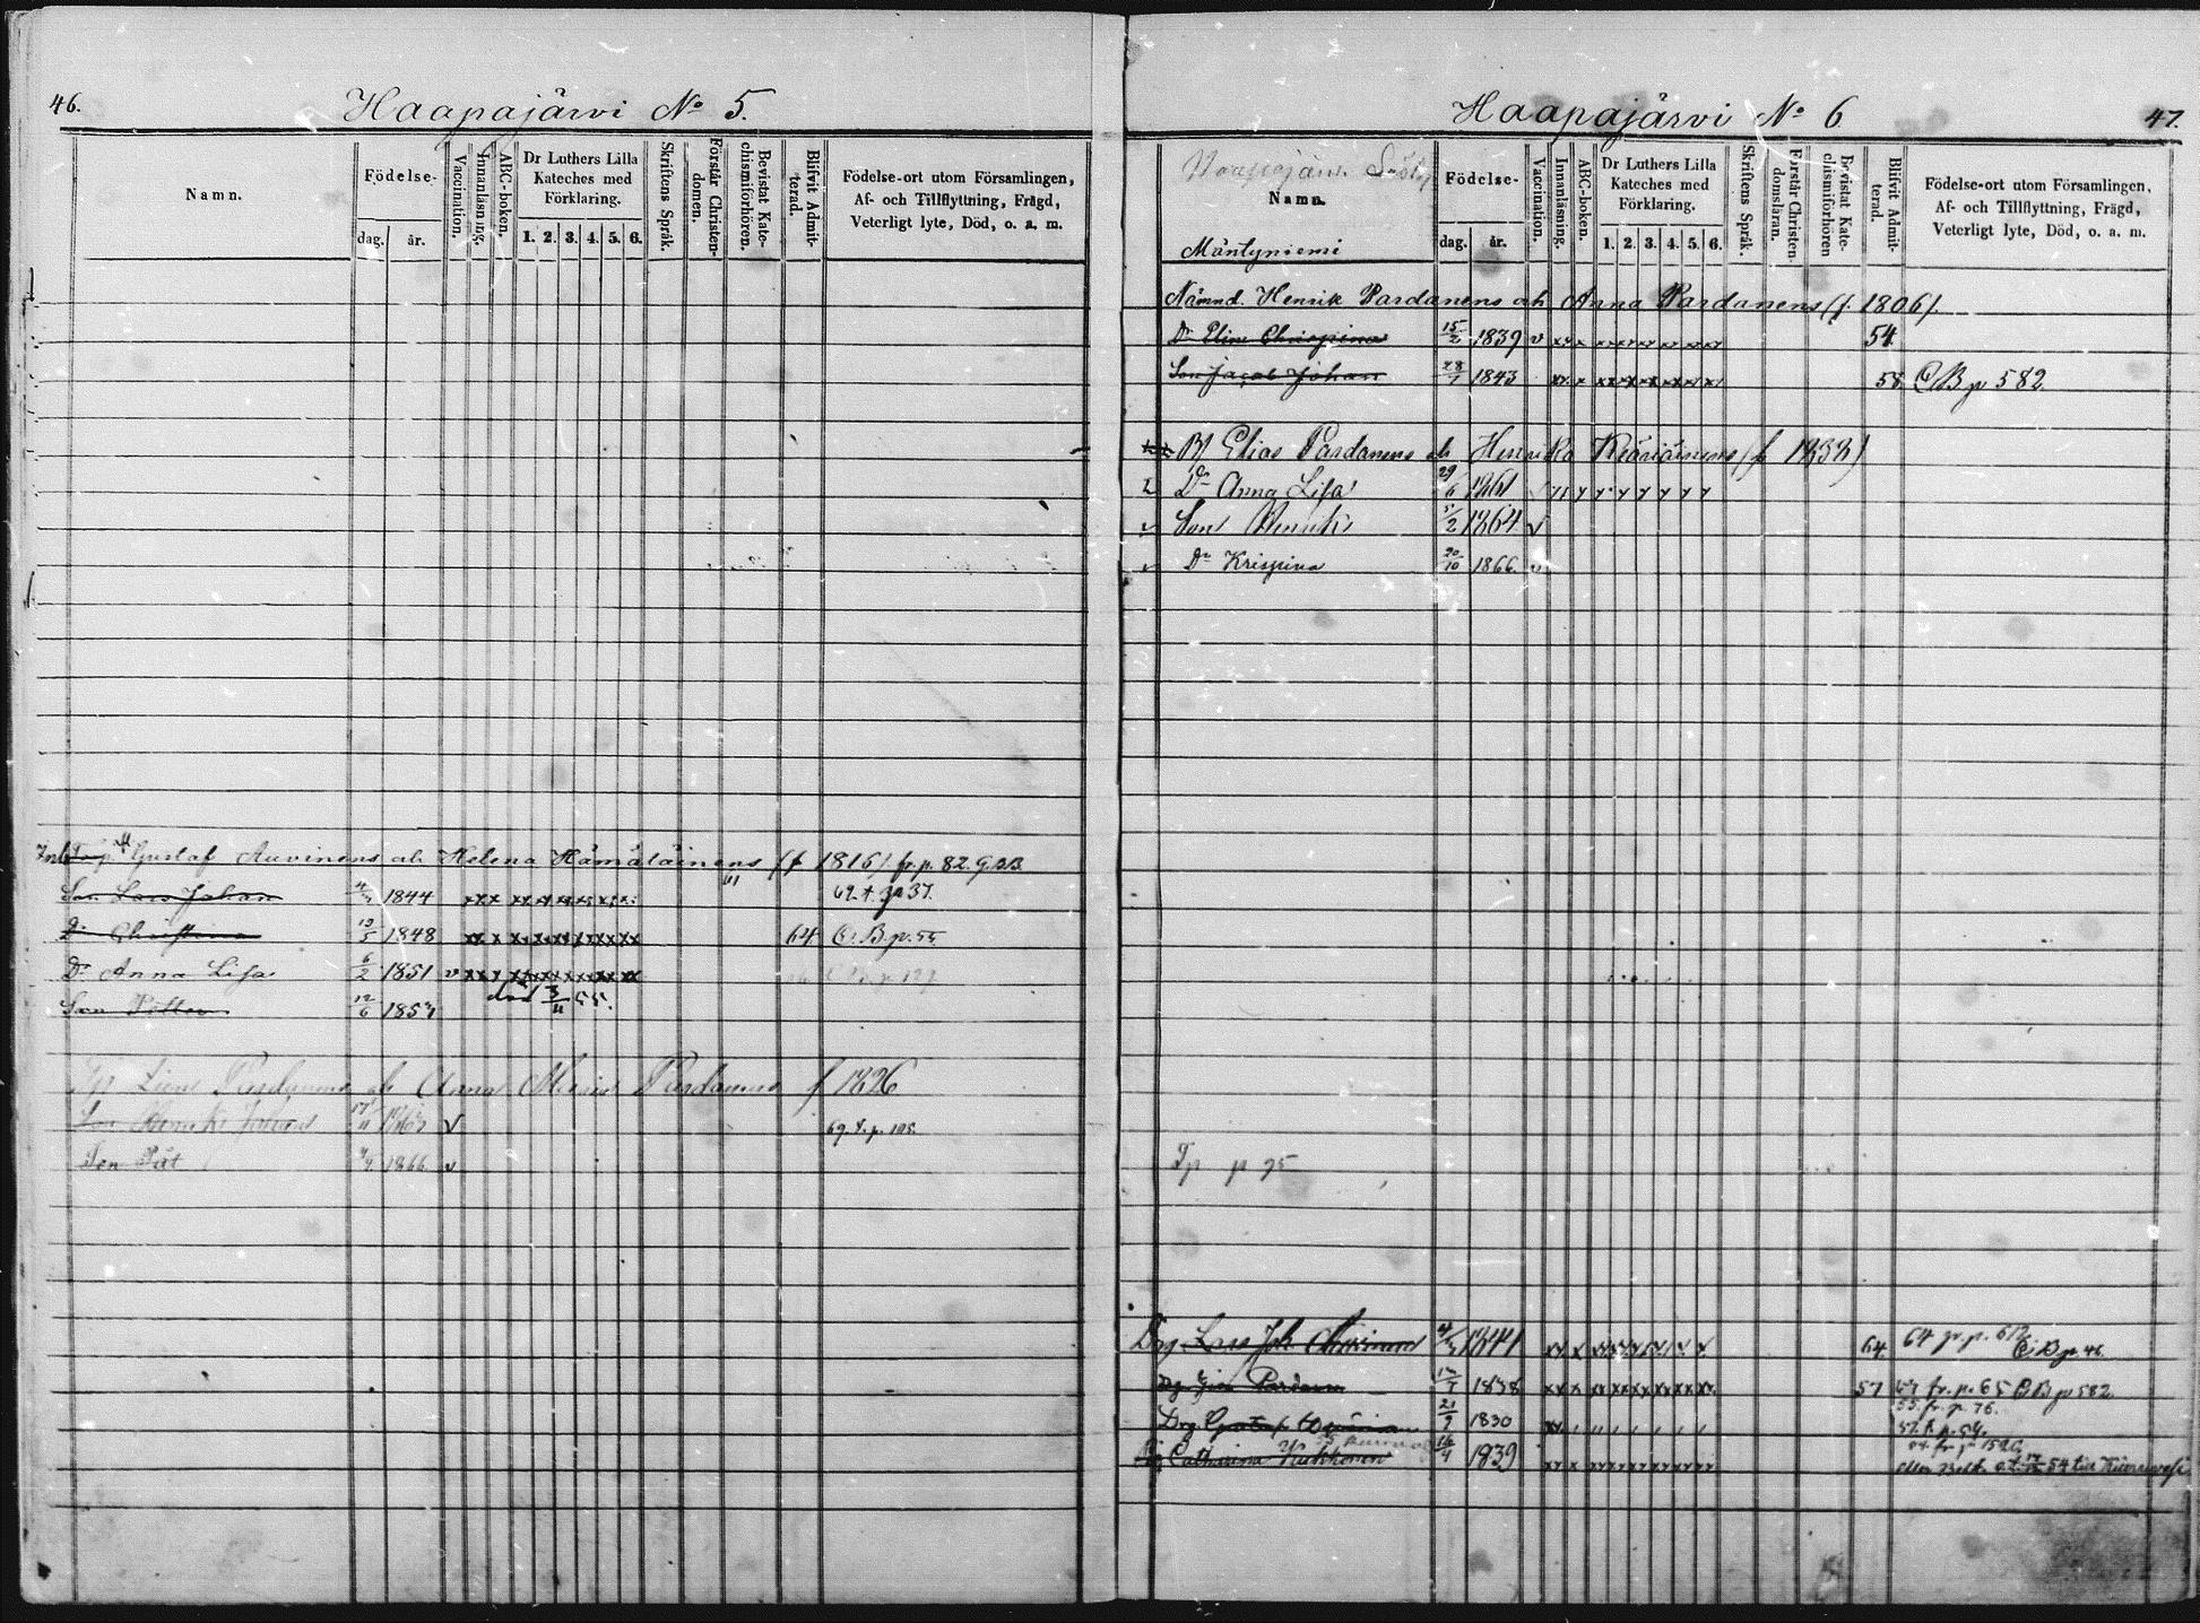 46.
Haapajärvi No 5.
Namn.
Födelse-
dag. år.
Vaccination.
Innanläsning.
ABC-boken.
Dr Luthers Lilla Kateches med Förklaring.
1. 2. 3. 4. 5. 6.
Skriftens Språk.
Förstår Christen-domen.
Bevistat Kate-chismiförhören.
Blifvit Admit-terad.
Födelse-ort utom Församlingen,
Af- och Tillflyttning, Frägd,
Veterligt lyte, Död, o. a. m.
Gustaf Auvinens ah Helena Hämäläinens (f 1816) fr. p. 82.
Son Lars Johan 1844 xxx
Dr Christina 13/5 1848 64 C. B. p. 55
Dr Anna Lisa 6/2 1851 v
Son Petter 12/6 1853 död 3/11 55.
Anna Maria Pardanens f 1826
Son Henrik Johan 17/11 1863 v 69. f. p. 105.
Son Pål 1866 v
Haapajärvi No 6
47.
Namn.
Mäntyniemi
Födelse-
dag. år.
Vaccination.
Innanläsning.
ABC-boken.
Dr Luthers Lilla Kateches med Förklaring.
1. 2. 3. 4. 5. 6.
Skriftens Språk.
Förstår Christen-domsläran.
Bevistat Kate-chismiförhören
Blifvit Admit-terad.
Födelse-ort utom Församlingen,
Af- och Tillflyttning, Frägd,
Veterligt lyte, Död, o. a. m.
Nämnd. Henrik Pardanens ah Anna Pardanens (f. 1806).
Dr Elin Chrispina 15/2 1839 v 54.
Son Jacob Johan 28/7 1843 58 C B p 582.
Elias Pardanens ah Henrika Kääriäinens (f 1832)
Dr Anna Lisa 29/6 1861
Son Henrik 5/2 1864 v
Dr Krispina 20/10 1866. v
Tp p 75
Drg Lars Joh Auvinen 1844 64. 64 fr. p. 612 C. B p. 46.
Pardanen 1838 57 fr. p. 65 B B p 582.
Drg. Gustaf 21/9 1830 55. fr. p. 76.
Catharina Kukkonen 16/4 1839